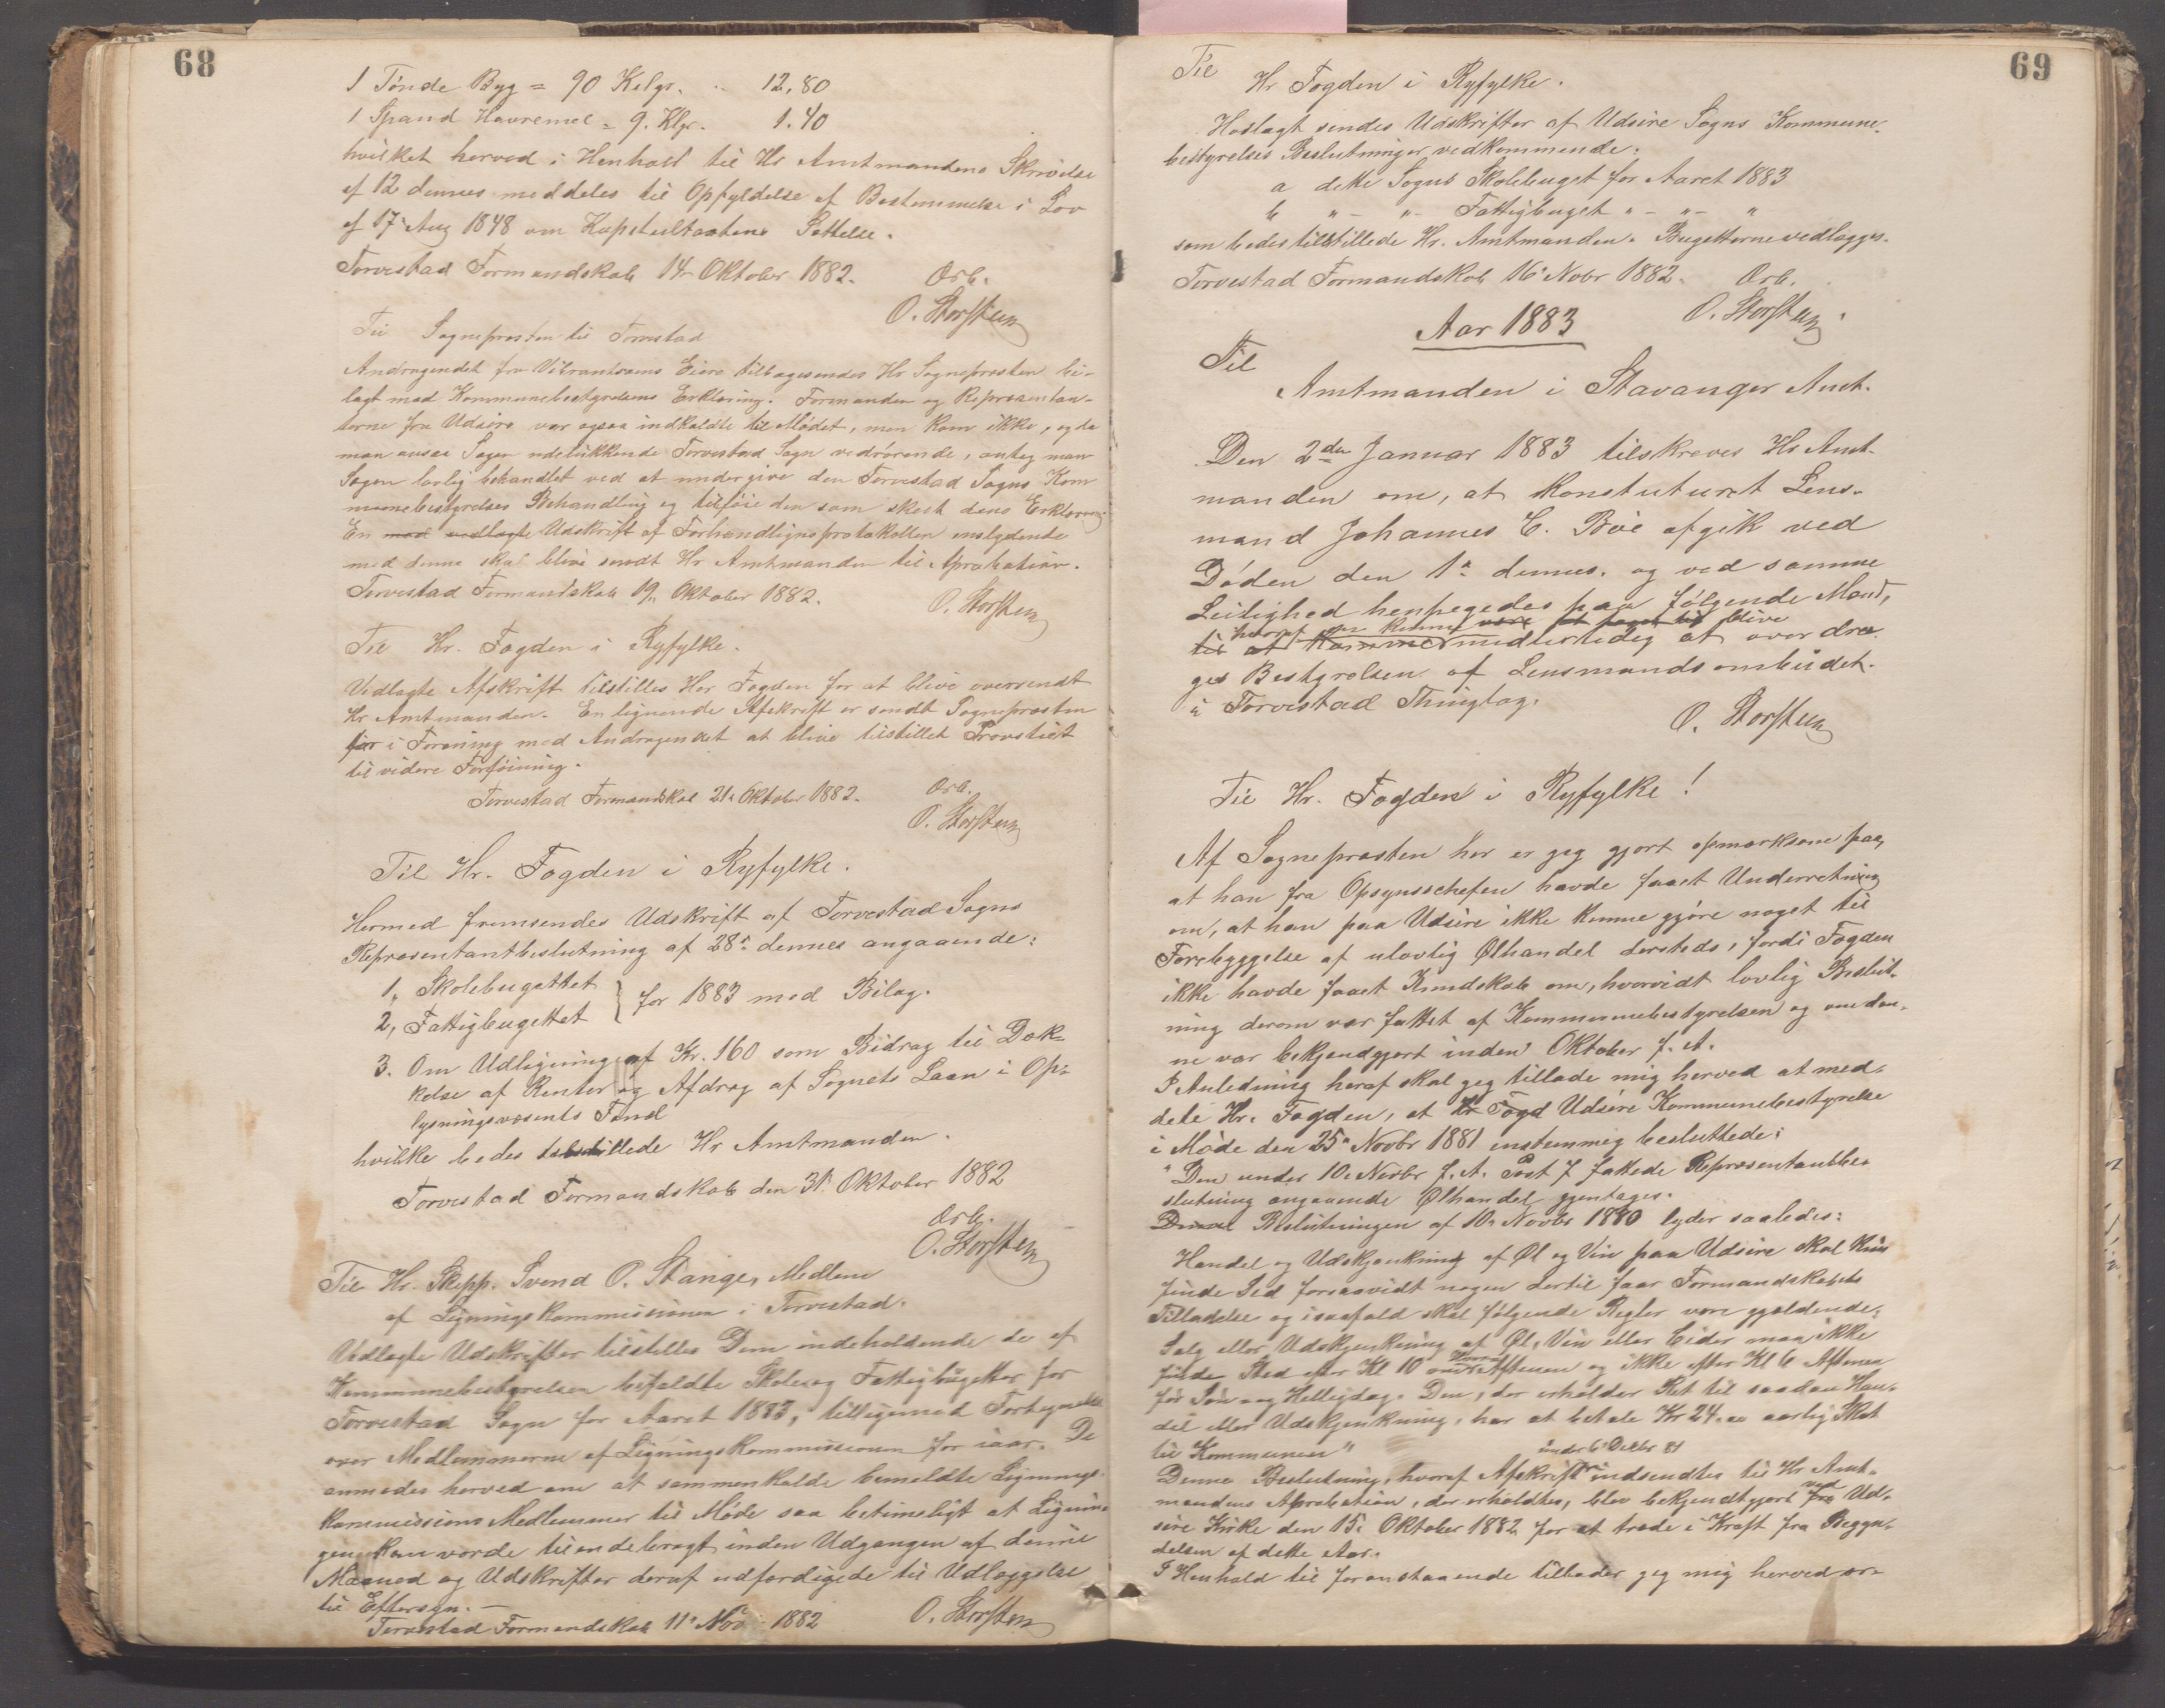 68
1 Tønde Byg = 90 Kilgr. .. 12,80
1 Spand Havremel = 9. Klgr. 1.40
hvilket herved i Henhold til Hr Amtmandens Skrivelse
af 12 dennes meddeles til Opfyldelse af Bestemmelse i Lov
af 17 Aug 1848 om Kapiteltaxtens Sættelse.
Torvestad Formandskab 14 Oktober 1882. Ærb.
O. Storsteen
Til Sognepræsten til Torvestad
Andragendet fra Eiere tilbagesendes Hr Sognepresten bi-
lagt med Kommunebestyrelsens Erklæring. Formanden og Repræsentan-
terne fra Udsire var ogsaa indkaldte til Mødet, men kom ikke, og da
man ansaa Sagen udelukkende Torvestad Sogn vedrørende, antog man
Sagen lovlig behandlet ved at undergive den Torvestad Sogns Kom
munebestyrelses Behandling og tilføie den som skeet dens Erklæring
En med vedlagte Udskrift af Forhandlingsprotokollen enslydende
med denne skal blive sendt Hr Amtmanden til Aprobation.
Torvestad Formandskab 19. Oktober 1882.
O. Storsteen
Til Hr. Fogden i Ryfylke.
Vedlagte Afskrift tilstilles Her Fogden for at blive oversendt
Hr Amtmanden. En lignende Afskrift er sendt Sognepræsten
for i Forening med Andragendet at blive tilstillet Provstiet
til videre Forføining.
Torvestad Formandskab 21. Oktober 1882. Ærb.
O. Storsteen
Til Hr. Fogden i Ryfylke.
Hermed fremsendes Udskrift af Torvestad Sogns
Repræsentantbeslutning af 28. dennes angaaende:
1, Skolebugettet
2, Fattigbugettet } for 1883 med Bilag.
3. Om Udligning af Kr. 160 som Bidrag til Dæk-
kelse af Renter og Afdrag af Sognets Laan i Op-
lysningsvæsents Fond
hvilke bedes tilstillede Hr Amtmanden.
Torvestad Formandskab den 31 Oktober 1882
Ærb.
O. Storsteen
Til Hr. Skipp. Svend O. Stange, Medlem
af Ligningskommissionen i Torvestad.
Vedlagte Udskrifter tilstilles Dem indeholdende de af
Kommunebestyrelsen Skole og Fattigbugetter for
Torvestad Sogn for Aaret 1883, tilligemed Fortegnelse
over Medlemmerne af Ligningskommissionen for iaar. De
anmodes herved om at sammenkalde bemeldte Lignings-
kommissions Medlemmer til Møde saa betimeligt at Lignin-
gen kan vorde tilendebragt inden Udgangen af denne
Maaned og Udskrifter deraf udfærdigede til Udlæggelse
til Eftersyn. —
Torvestad Formandskab 11. Nov 1882 O. Storsteen
69
Til
Hr Fogden i Ryfylke.
Hoslagt sendes Udskrifter af Udsire Sogns Kommune-
bestyrelses Beslutninger vedkommende:
a dette Sogns Skolebuget for Aaret 1883
b " - " - Fattigbuget " - " - "
som bedes tilstillede Hr. Amtmanden. Bugetterne vedlægges.
Torvestad Formandskab 16. Novbr 1882. Ærb.
O. Storsteen.
Aar 1883
Til
Amtmanden i Stavanger Amt.
Den 2den Januar 1883 tilskreves Hr Amt-
manden om, at konstitueret Lens-
mand Johannes E. Bøe afgik ved
Døden den 1. dennes. og ved samme
Leilighed henpegedes paa følgende Mænd,
hvoraf en kunne være blive
til at midlertidig at overdra-
ges Bestyrelsen af Lensmandsombudet
i Torvestad Thinglag.
O. Storsteen
Til Hr. Fogden i Ryfylke!
Af Sognepræsten her er jeg gjort opmærksom paa,
at han fra Opsynschefen havde faaet Underretning
om, at han paa Udsire ikke kunne gjøre noget til
Forebyggelse af ulovlig Ølhandel dersteds, fordi Fogden
ikke havde faaet Kundskab om, hvorvidt lovlig Beslut-
ning derom var fattet af Kommunebestyrelsen og om den-
ne var bekjendgjort inden Oktober f. A.
I Anledning heraf skal jeg tillade mig herved at med-
dele Hr. Fogden, at Hr Fogd Udsire Kommunebestyrelse
i Møde den 25. Novbr 1881 enstemmig besluttede:
"Den under 10. Novbr f. A. Post 7 fattede Repræsentantbe-
slutning angaaende Ølhandel gjentages.
Beslutningen af 10. Novbr 1880 lyder saaledes:
Handel og Udskjænkning af Øl og Vin paa Udsire skal kun
finde Sted forsaavidt nogen dertil faar Formandskabets
Tilladelse og isaafald skal følgende Regler være gjældende:
Salg eller Udskjænkning af Øl, Vin eller Cider maa ikke
finde Sted efter Kl 10 om Aftenen og ikke efter Kl 6 Aftenen
før Søn- og Helligdag. Den, der erholder Ret til saadan Han-
del eller Udskjænkning, har at betale Kr 24.00 aarlig Skat
til Kommunen"
under 6. Decbr 81
Denne Beslutning, hvoraf Afskrift indsendtes til Hr Amt-
mandens Aprobation, der erholdtes, blev bekjendtgjort ved fra Ud-
sire Kirke den 15. Oktober 1882 for at træde i Kraft fra Begyn-
delsen af dette Aar.
I Henhold til foranstaaende tillader jeg mig herved ær-